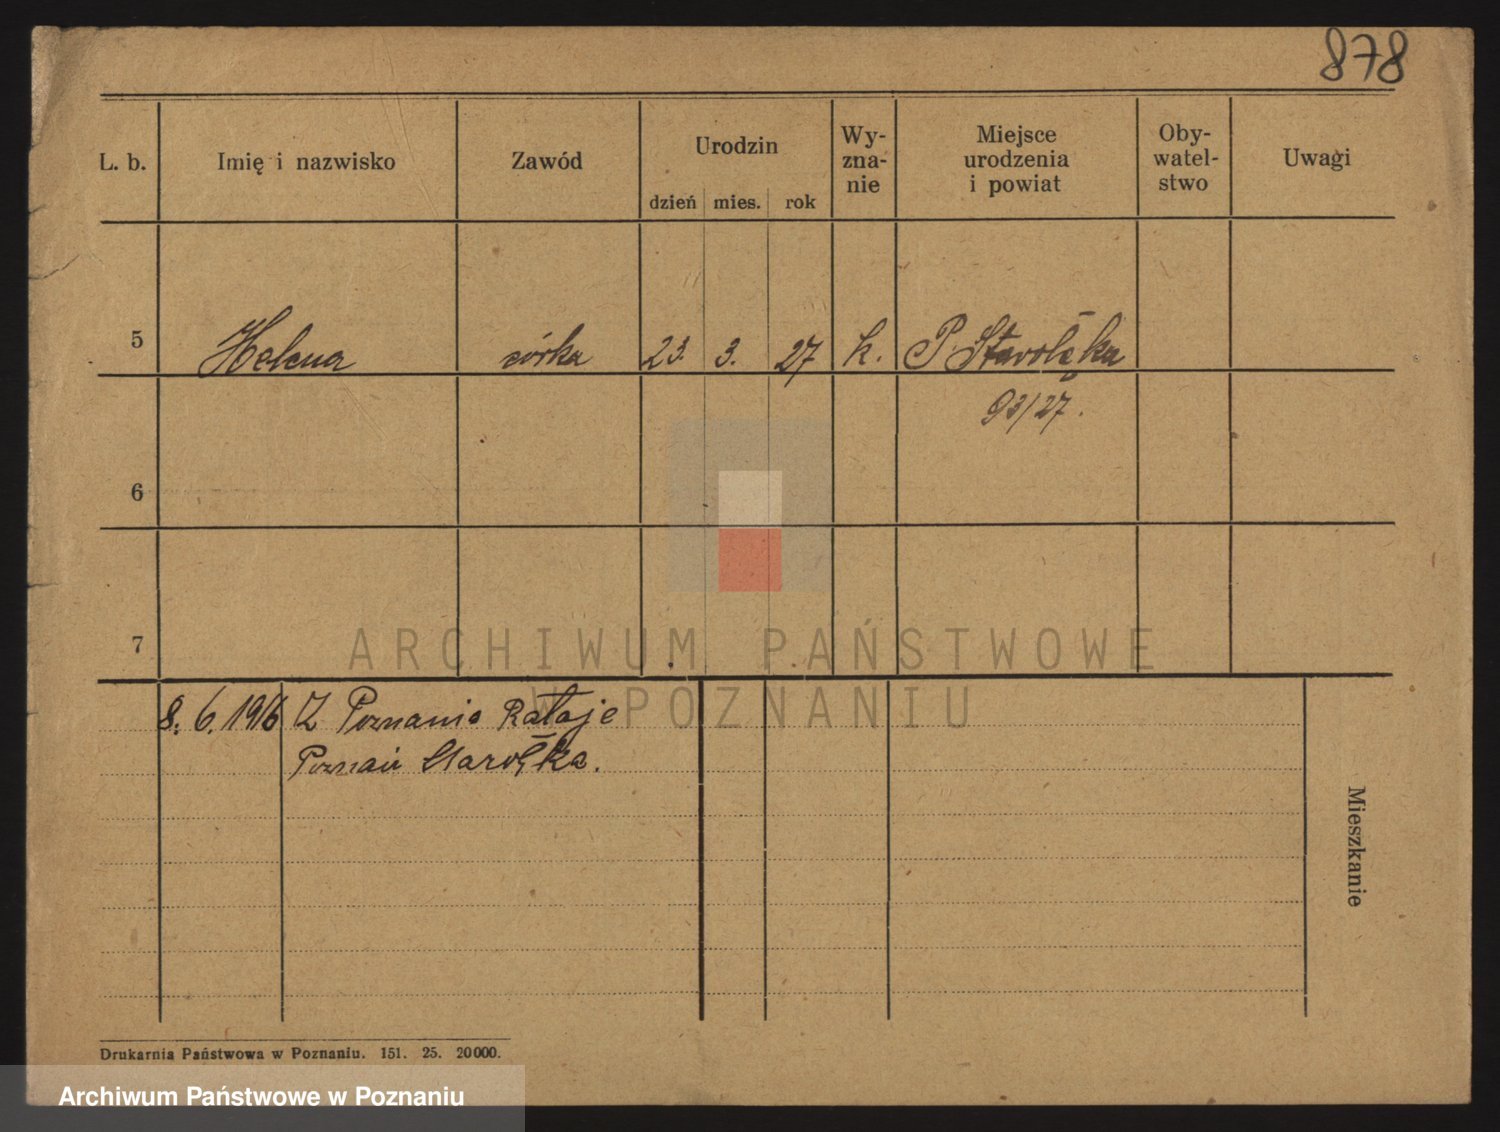 878
L. b.
Imię i nazwisko
Zawód
Urodzin
dzień mies. rok
Wy-
zna-
nie
Miejsce
urodzenia
i powiat
Oby-
watel-
stwo
Uwagi
5 Helena córka 23. 3. 27 k. P. Starołęka
93/27.
6
7
ARCHIWUM PAŃSTWOWE
W POZNANIU
8. 6. 1916 Z Poznania Rataje
Poznań Starołęka.
Mieszkanie
Drukarnia Państwowa w Poznaniu. 151. 25. 20000.
Archiwum Państwowe w Poznaniu